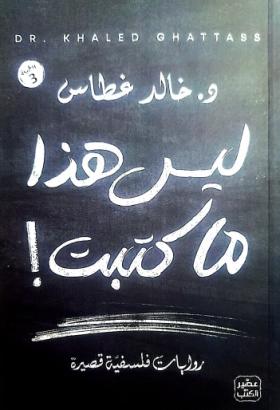 DR. KHALED GHATTASS
د. خالد غطاس
3
ليس هذا
ما كتبت!
روايات فلسفية قصيرة
عصير
الكتب